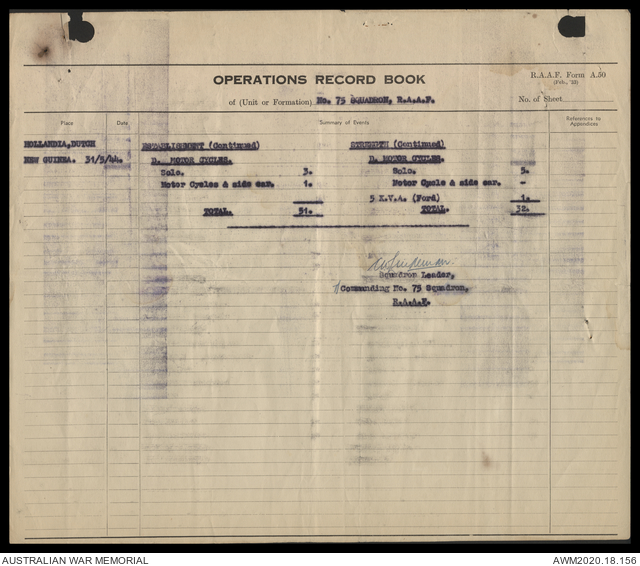 OPERATIONS RECORD BOOK
R.A.A.F. Form A.50
of (Unit or Formation) No. 75 SQUADRON, R.A.A.F.
No. of Sheet
Place Date Summary of Events References to Appendices
HOLLANDIA, DUTCH ESTABLISHMENT (Continued) STRENGTH (Continued)
NEW GUINEA. 31/5/44. D. MOTOR CYCLES. D. MOTOR CYCLES.
Solo. 3. Solo. 5.
Motor Cycles & side car. 1. Motor Cycle & side car. -
5 K.V.A. (Ford) 1.
TOTAL. 51. TOTAL. 32.
Squadron Leader,
Commanding No. 75 Squadron,
R.A.A.F.
AUSTRALIAN WAR MEMORIAL AWM2020.18.156